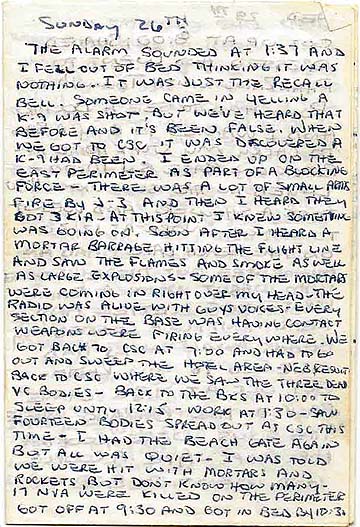 SUNDAY 26TH
THE ALARM SOUNDED AT 1:37 AND
I FELL OUT OF BED THINKING IT WAS
NOTHING. IT WAS JUST THE RECALL
BELL. SOMEONE CAME IN YELLING A
K-9 WAS SHOT. BUT WE'VE HEARD THAT
BEFORE AND IT'S BEEN FALSE. WHEN
WE GOT TO CSC IT WAS DISCOVERED A
K-9 HAD BEEN. I ENDED UP ON THE
EAST PERIMETER AS PART OF A BLOCKING
FORCE - THERE WAS A LOT OF SMALL ARMS
FIRE BY J-3 AND THEN I HEARD THEY
GOT 3 KIA. AT THIS POINT I KNEW SOMETHING
WAS GOING ON. SOON AFTER I HEARD A
MORTAR BARRAGE HITTING THE FLIGHT LINE
AND SAW THE FLAMES AND SMOKE AS WELL
AS LARGE EXPLOSIONS - SOME OF THE MORTARS
WERE COMING IN RIGHT OVER MY HEAD - THE
RADIO WAS ALIVE WITH GUYS VOICES - EVERY
SECTION ON THE BASE WAS HAVING CONTACT
WEAPONS WERE FIRING EVERYWHERE. WE
GOT BACK TO CSC AT 7:00 AND HAD TO GO
OUT AND SWEEP THE HOTEL AREA - NEB RESULT
BACK TO CSC WHERE WE SAW THE THREE DEAD
VC BODIES - BACK TO THE BKS AT 10:00 TO
SLEEP UNTIL 12:15 - WORK AT 1:30 - SAW
FOURTEEN BODIES SPREAD OUT AS CSC THIS
TIME - I HAD THE BEACH GATE AGAIN
BUT ALL WAS QUIET - I WAS TOLD
WE WERE HIT WITH MORTARS AND
ROCKETS, BUT DON'T KNOW HOW MANY -
17 NVA WERE KILLED ON THE PERIMETER
GOT OFF AT 9:30 AND GOT IN BED BY 10:30